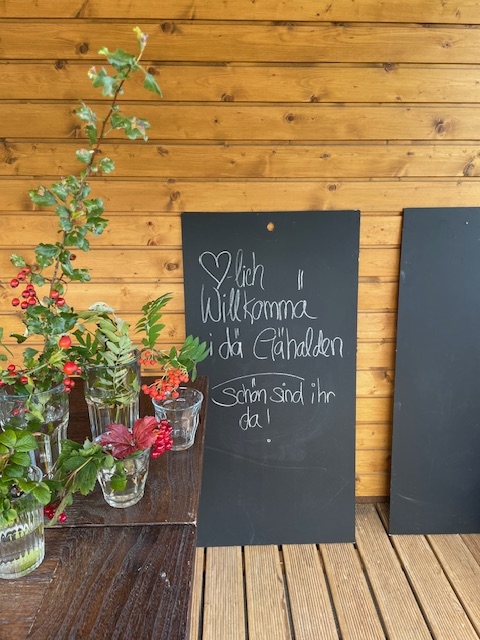 ♡lich
Willkommä
i dä Gähalden
schön sind ihr
da!